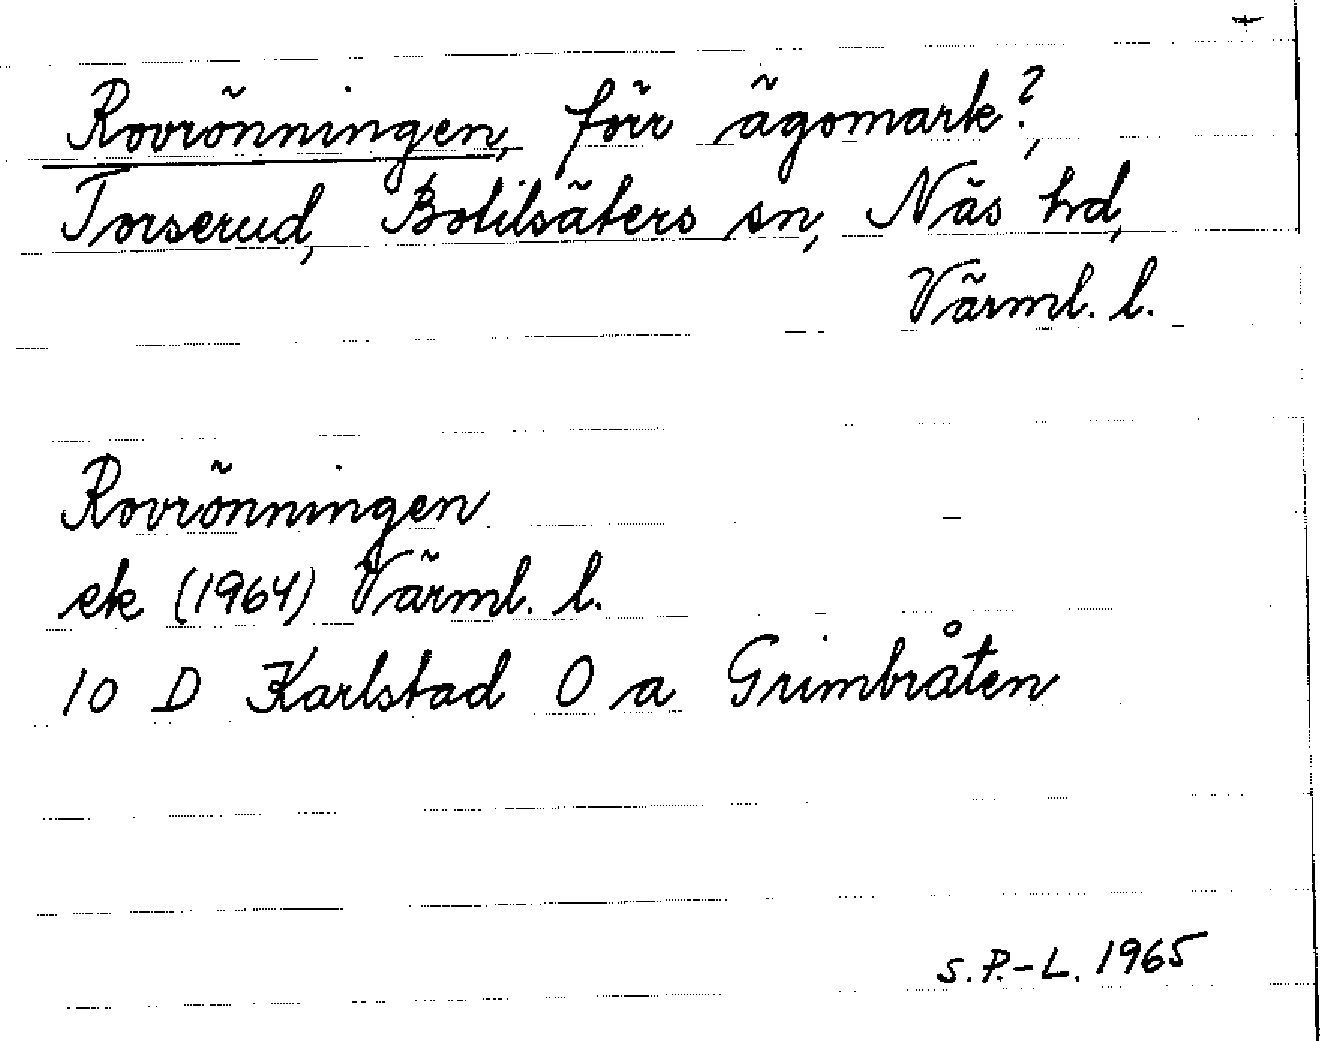 Rovrönningen, förr ägomark?,
Torserud, Botilsäters sn, Näs hd,
Värml. l.
Rovrönningen
ek (1964) Värml. l.
10 D Karlstad 0 a Grimbråten
S.P.-L. 1965